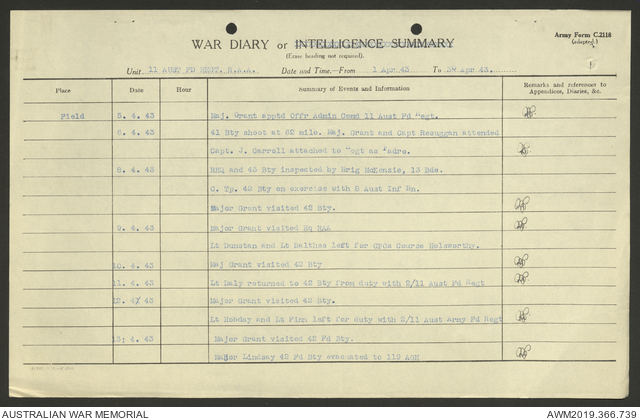 WAR DIARY or INTELLIGENCE SUMMARY
(Erase heading not required).
Army Form C.2118
(adapted.)
Unit 11 AUST FD REGT. R.A.A. Date and Time.—From 1 Apr 43 To 30 Apr 43.
Place Date Hour Summary of Events and Information Remarks and references to Appendices, Diaries, &c.
Field 5. 4. 43 Maj. Grant apptd Offr Admin Comd 11 Aust Fd Regt.
6. 4. 43 41 Bty shoot at 62 mile. Maj. Grant and Capt attended
Capt. J. Carroll attached to Regt as Cadre.
8. 4. 43 RHQ and 43 Bty inspected by Brig McKenzie, 13 Bde.
C. Tp. 42 Bty on exercise with Aust Inf Bn.
Major Grant visited 42 Bty.
9. 4. 43 Major Grant visited Hq RAA
Lt Dunstan and Lt Balthes left for GPOs Course Holsworthy.
10. 4. 43 Maj Grant visited 42 Bty
11. 4. 43 Lt Daly returned to 42 Bty from duty with 2/11 Aust Fd Regt
12. 4/ 43 Major Grant visited 42 Bty.
Lt Hobday and Lt Finn left for duty with 2/11 Aust Army Fd Regt
13; 4. 43 Major Grant visited 42 Fd Bty.
Major Lindsay 42 Fd Bty evacuated to 119 AGH
AUSTRALIAN WAR MEMORIAL AWM2019.366.739